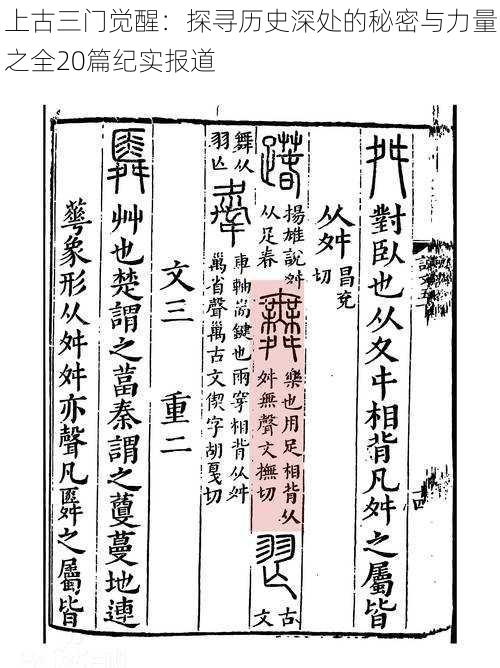 上古三门觉醒：探寻历史深处的秘密与力量
之全20篇纪实报道
舛對臥也从夊㐄相背凡舛之屬皆
从舛昌兖切
䠢揚雄說舛从足春
舞樂也用足相背从舛無聲文撫切
𦏶古文
舞从羽亡
舝車軸耑鍵也兩穿相背从舛
𥜿省聲𥜿古文偰字胡戛切
文三 重二
䑞艸也楚謂之葍秦謂之藑蔓地連
蕐象形从舛舛亦聲凡䑞之屬皆